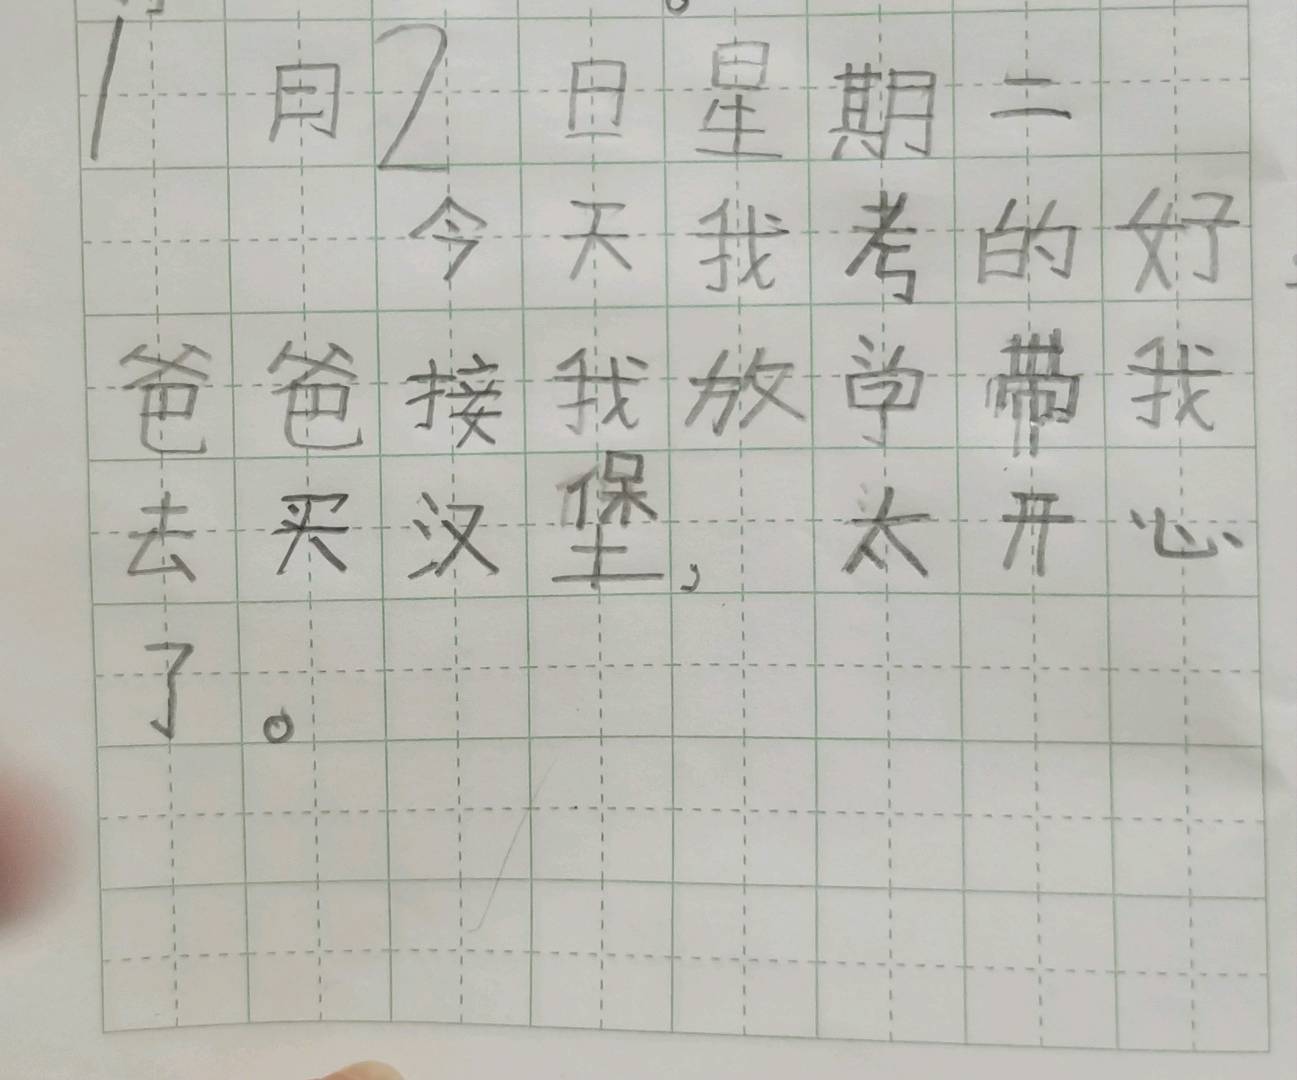 1月2日星期二
今天我考的好
爸爸接我放学带我
去买汉堡，太开心
了。